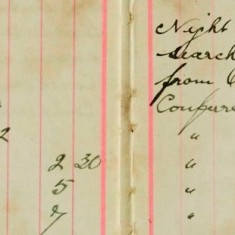 2
2 30
5
7
Night
search
from
"
"
"
"